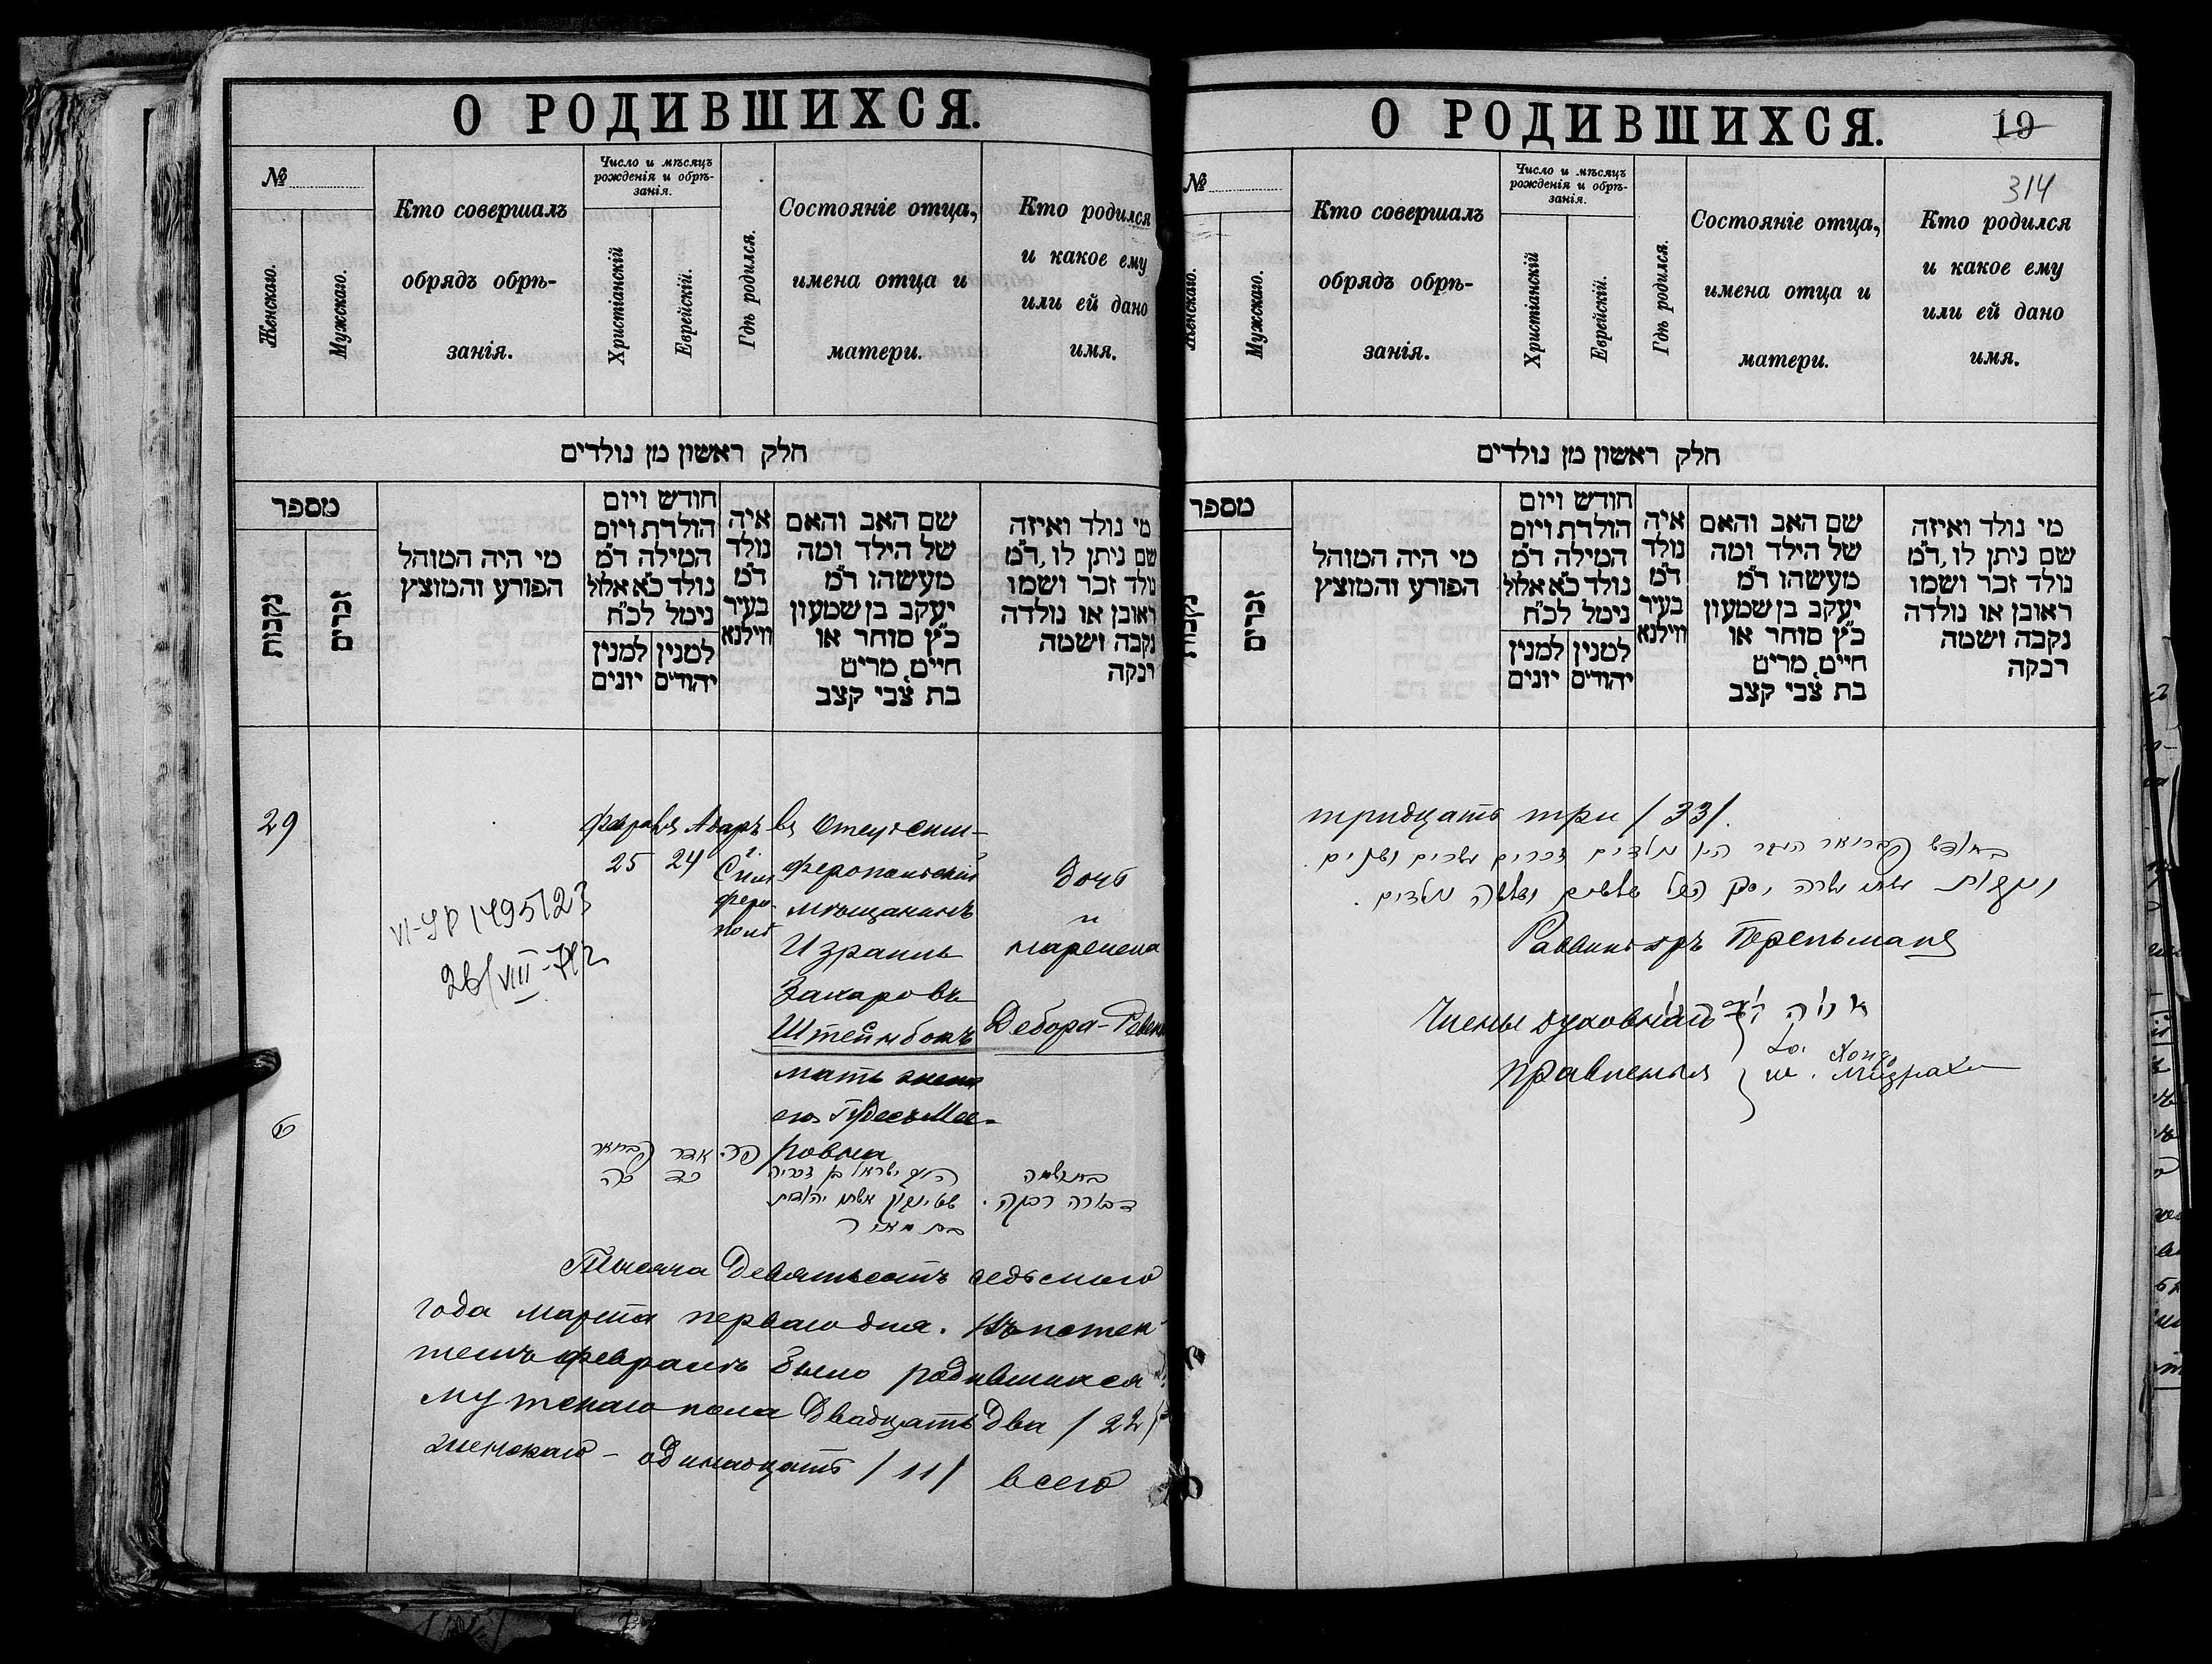 О РОДИВШИХСЯ.
№
Женскаго.
Мужскаго.
Кто совершалъ
обрядъ обрѣ-
занія.
Число и мѣсяцъ
рожденія и обрѣ-
занія.
Христіанскій
Еврейскій.
Гдѣ родился.
Состояніе отца,
имена отца и
матери.
Кто родился
и какое ему
или ей дано
имя.
חלק ראשון מן נולדים
מספר
נקבות
זכרים
מי היה המוהל
הפורע והמוצץ
חודש ויום
הולדת ויום
המילה ד״מ
נולד כ״א אלול
נימל לכ״ח
למנין יהודים
למנין יונים
איה
נולד
ד״מ
בעיר
ווילנא
שם האב והאם
של הילד ומה
מעשהו ד״מ
יעקב בן שמעון
כ״ץ סוחר או
חיים, מרים
בת צבי קצב
מי נולד ואיזה
שם ניתן לו, ד״מ
נולד זכר ושמו
ראובן או נולדה
נקבה ושמה
רבקה
29
Адаръ
25 24
VI-ЯР 1495123
26/VIII-
Симферополь
Отец Сим-
феропольскій
мѣщанинъ
Израиль
Захаровъ
Штейнбокъ
мать жена
его
ровна
дочь
и
наречена
Дебора-
6
אדר
כד כה
ישראל בן זכריה
אשתו יהודית
בת מאיר
דבורה רבקה.
Тысяча Девятьсотъ седьмого
года марта перваго дня. Въ истек-
шемъ февралѣ было родившихся
мужскаго пола Двадцать два /22/
женскаго - одинадцать /11/ всего
О РОДИВШИХСЯ.
19
314
№
Женскаго.
Мужскаго.
Кто совершалъ
обрядъ обрѣ-
занія.
Число и мѣсяцъ
рожденія и обрѣ-
занія.
Христіанскій
Еврейскій.
Гдѣ родился.
Состояніе отца,
имена отца и
матери.
Кто родился
и какое ему
или ей дано
имя.
חלק ראשון מן נולדים
מספר
נקבות
זכרים
מי היה המוהל
הפורע והמוצץ
חודש ויום
הולדת ויום
המילה ד״מ
נולד כ״א אלול
נימל לכ״ח
למנין יהודים
למנין יונים
איה
נולד
ד״מ
בעיר
ווילנא
שם האב והאם
של הילד ומה
מעשהו ד״מ
יעקב בן שמעון
כ״ץ סוחר או
חיים, מרים
בת צבי קצב
מי נולד ואיזה
שם ניתן לו, ד״מ
נולד זכר ושמו
ראובן או נולדה
נקבה ושמה
רבקה
тридцать три /33/.
בחודש פברואר העבר היו נולדים זכרים עשרים ושנים.
הכל שלשים ושלשה נולדים.
Раввинъ
Члены духовнаго
правленія
Мизрахи